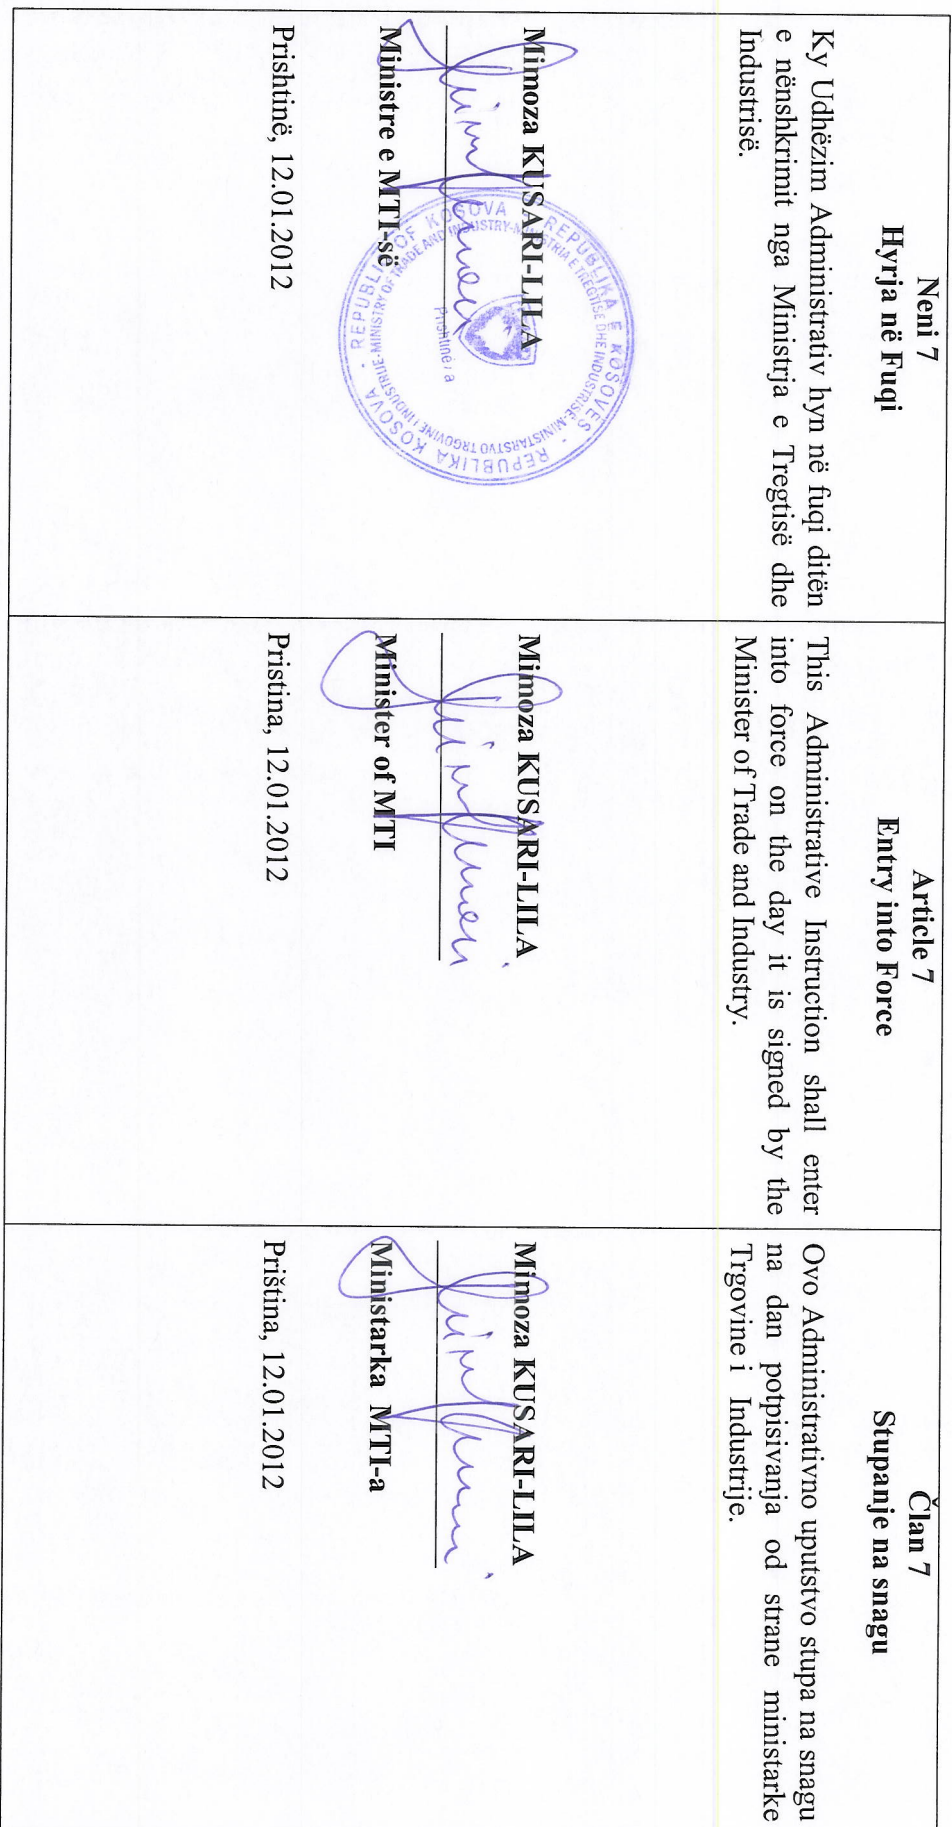 Neni 7
Hyrja në Fuqi
Ky Udhëzim Administrativ hyn në fuqi ditën
e nënshkrimit nga Ministrja e Tregtisë dhe
Industrisë.
Mimoza KUSARI-LILA
Ministre e MTI-së
REPUBLIKA E KOSOVËS - REPUBLIKA KOSOVA - REPUBLIC OF KOSOVA
MINISTRIA E TREGTISË DHE INDUSTRISË-MINISTARSTVO TRGOVINE I INDUSTRIJE-MINISTRY OF TRADE AND INDUSTRY
Prishtinë, 12.01.2012
Article 7
Entry into Force
This Administrative Instruction shall enter
into force on the day it is signed by the
Minister of Trade and Industry.
Mimoza KUSARI-LILA
Minister of MTI
Pristina, 12.01.2012
Član 7
Stupanje na snagu
Ovo Administrativno uputstvo stupa na snagu
na dan potpisivanja od strane ministarke
Trgovine i Industrije.
Mimoza KUSARI-LILA
Ministarka MTI-a
Priština, 12.01.2012